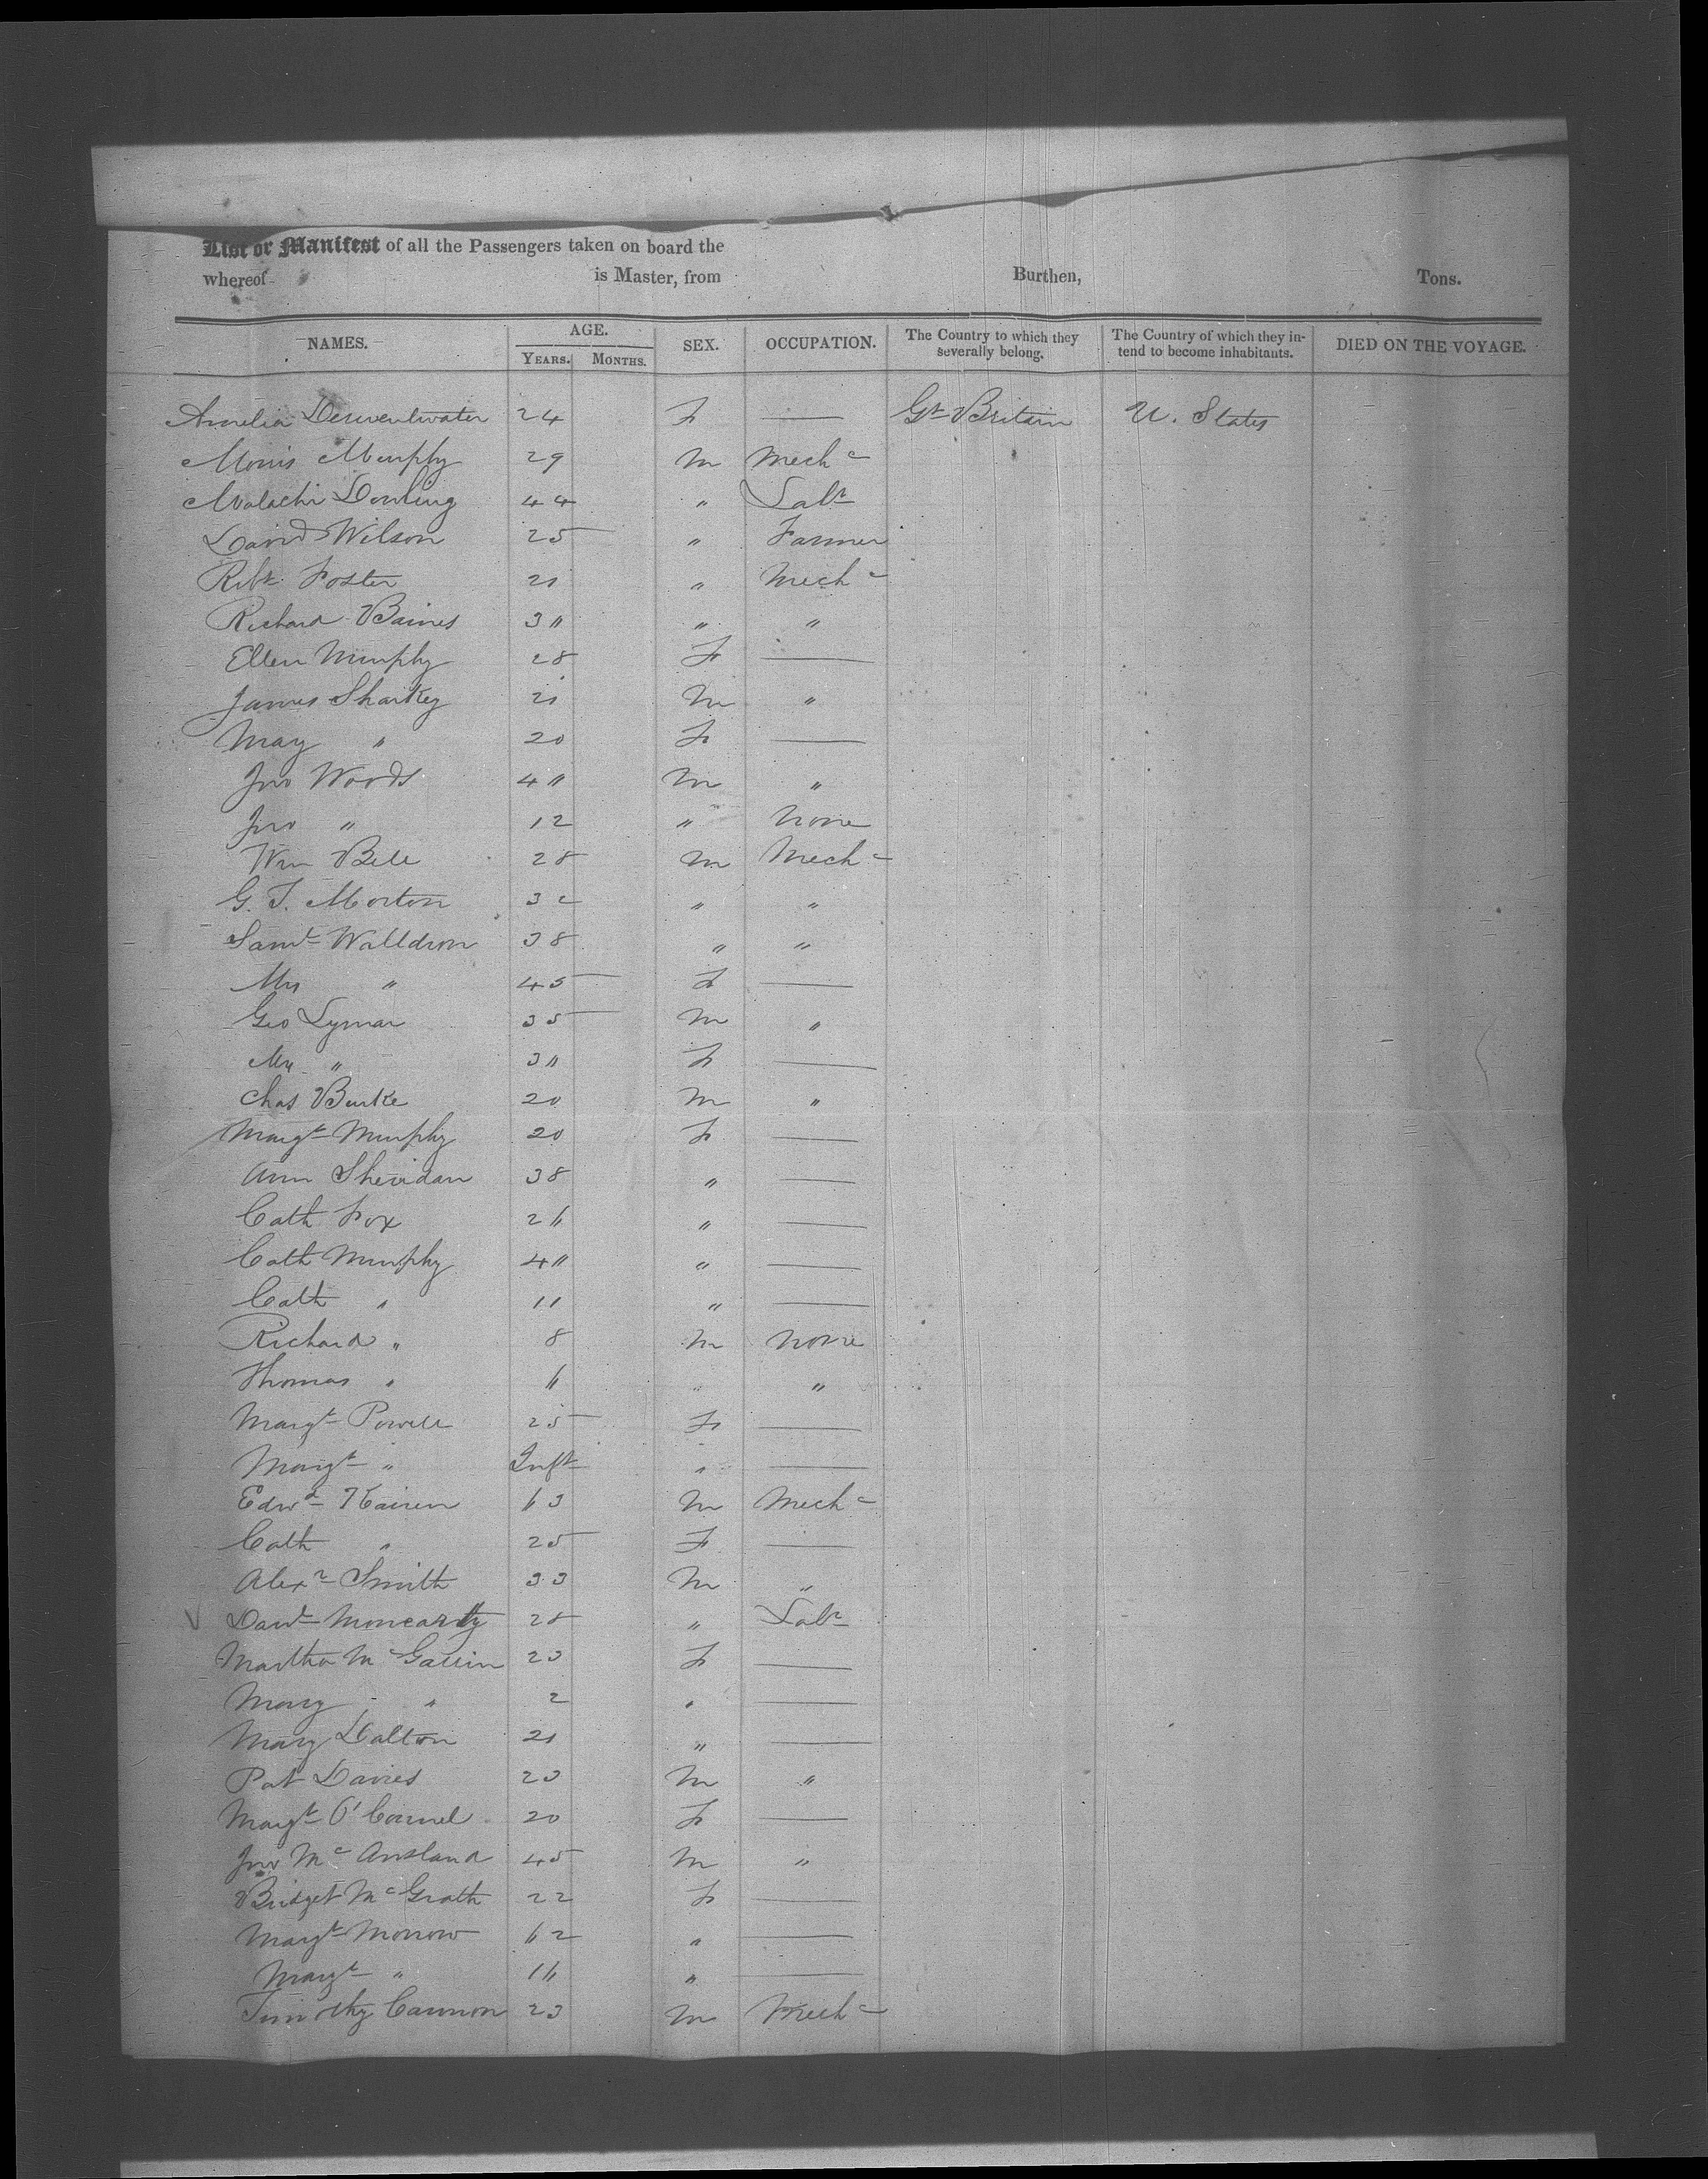 List or Manifest of all the Passengers taken on board the
whereof is Master, from Burthen, Tons.
NAMES. AGE. YEARS. MONTHS. SEX. OCCUPATION. The Country to which they severally belong. The Country of which they intend to become inhabitants. DIED ON THE VOYAGE.
Amelia Derwentwater 24 F — Gt Britain U. States
Morris Murphy 29 M Mechc
Malachi Dowling 44 " Labr
David Wilson 25 " Farmer
Robt. Foster 21 " Mechc
Richard Baines 30 " "
Ellen Murphy 28 F —
James Sharkey 21 M "
Mary " 20 F —
Jno Woods 40 M "
Jno " 12 " None
Wm Bell 28 M Mechc
G. T. Morton 32 " "
Saml Walldron 38 " "
Mrs " 45 F —
Geo Lyman 35 M "
Mrs " 30 F —
Chas Burke 20 M "
Margt Murphy 20 F —
Ann Sheridan 38 " —
Cath Fox 26 " —
Cath Murphy 40 " —
Cath " 11 " —
Richard " 8 M None
Thomas " 6 " "
Margt Powell 25 F —
Margt " Inft " —
Edwd 63 M Mechc
Cath " 25 F —
Alexr Smith 33 M "
28 " Labr
Martha 23 F —
Mary " 2 " —
Mary Dalton 21 " —
Pat Davies 23 M "
Margt O'Connel 20 F —
Jno Mc Ausland 45 M "
Bridget McGrath 22 F —
Margt Morrow 62 " —
Margt " 16 " —
Timothy Cannon 23 M Mechc